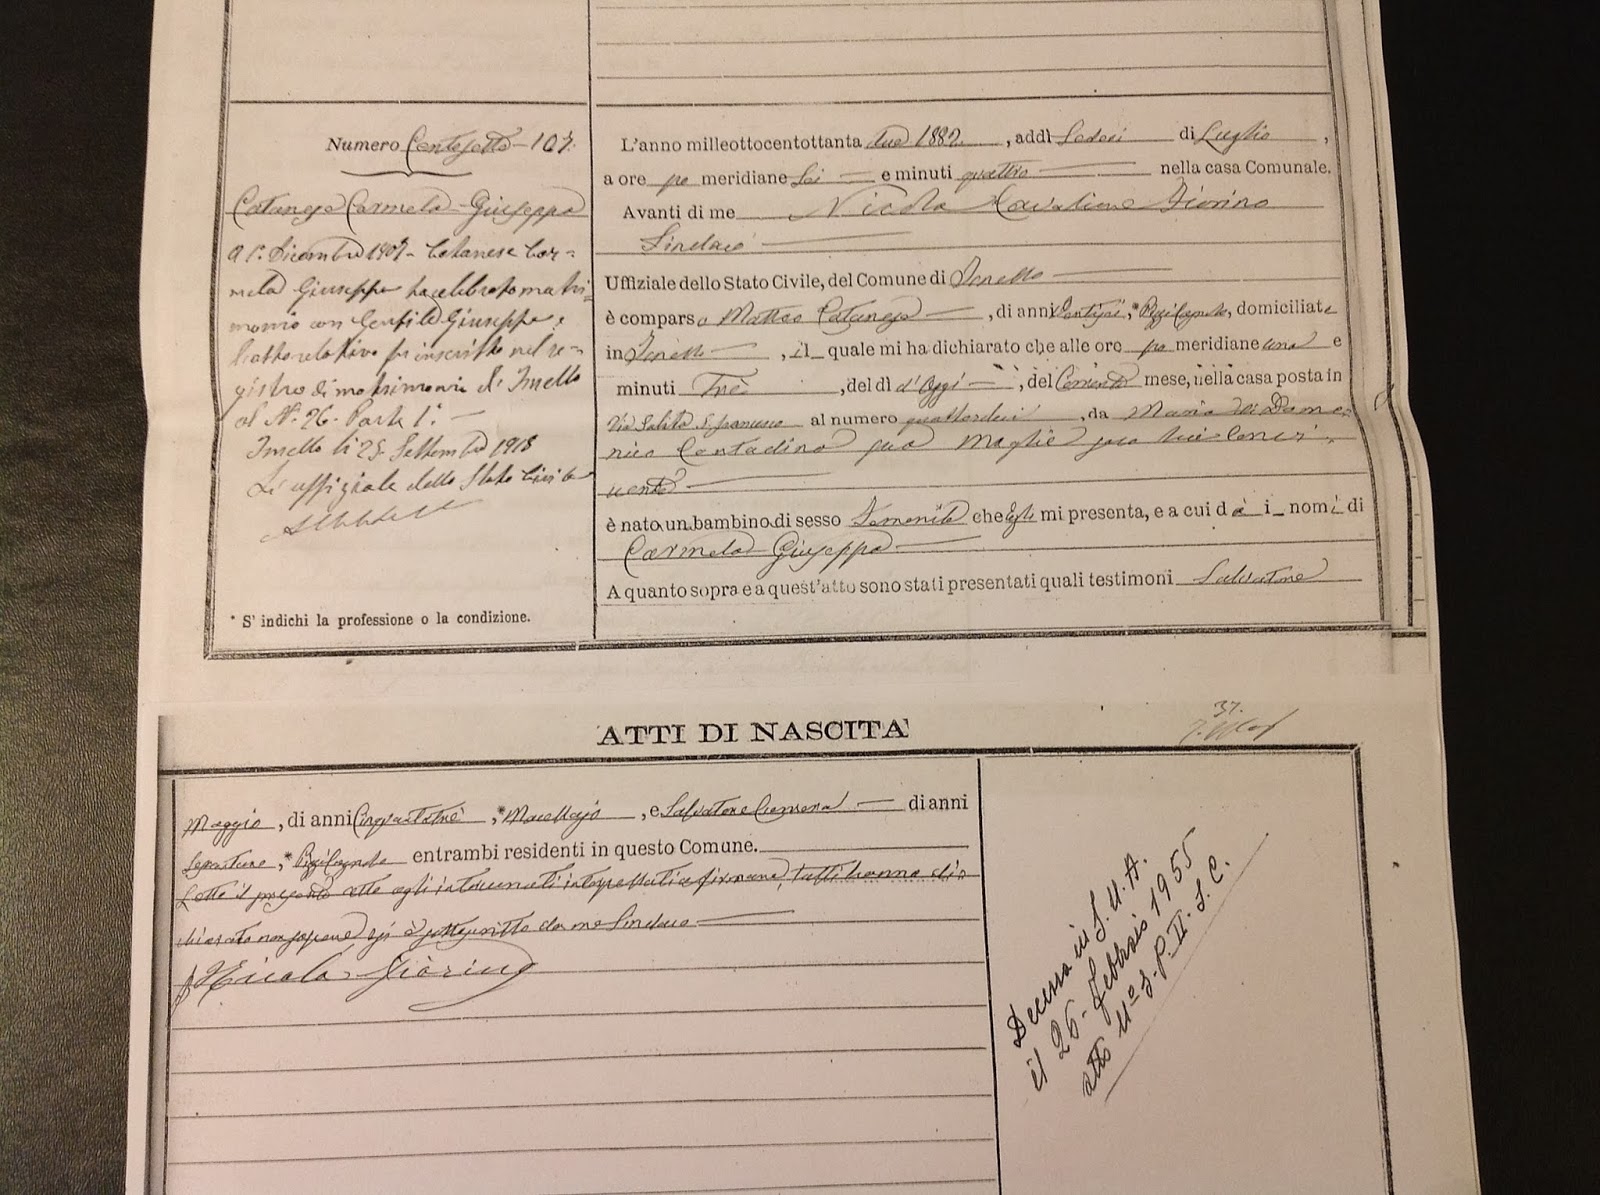 Numero Centosette - 107.
Catanese Carmela - Giuseppa
A 1º Dicembre 1907 - Catanese Car-
mela Giuseppa ha celebrato matri-
monio con Gentile Giuseppe, e
l'atto relativo fu inscritto nel re-
gistro di matrimonii di Isnello
al N. 26 - Parte 1ª. -
Isnello li 25 Settembre 1918
L'uffiziale dello Stato Civile
* S' indichi la professione o la condizione.
L'anno milleottocentottanta due 1882, addì Sedeci di Luglio,
a ore po meridiane Sei e minuti quattro nella casa Comunale.
Avanti di me Nicola Cavaliere Fiorino
Sindaco
Uffiziale dello Stato Civile, del Comune di Isnello
è comparso Matteo Catanese, di anni, * domiciliato
in Isnello, il quale mi ha dichiarato che alle ore po meridiane una e
minuti Trè, del dì d'Oggi, del Corrente mese, nella casa posta in
Via Salita S. Francesco al numero quattordici, da Maria Di Dome-
nico Contadina sua Moglie seco lui convi-
vente
è nato un bambino di sesso Femenile che Egli mi presenta, e a cui dà i nomi di
Carmela Giuseppa
A quanto sopra e a quest'atto sono stati presentati quali testimoni Salvatore
37.
ATTI DI NASCITA
Maggio, di anni Cinquantatrè, * Macellajo, e Salvatore di anni
* entrambi residenti in questo Comune.
Letto il presente atto agli intervenuti interpellati a firmare, tutti hanno di-
chiarato non sapere si è sottoscritto da me Sindaco
Nicola Fiorino
Decessa in S.U.A.
il 26 - Febbraio 1955
atto Nº 3. P. II. S. C.